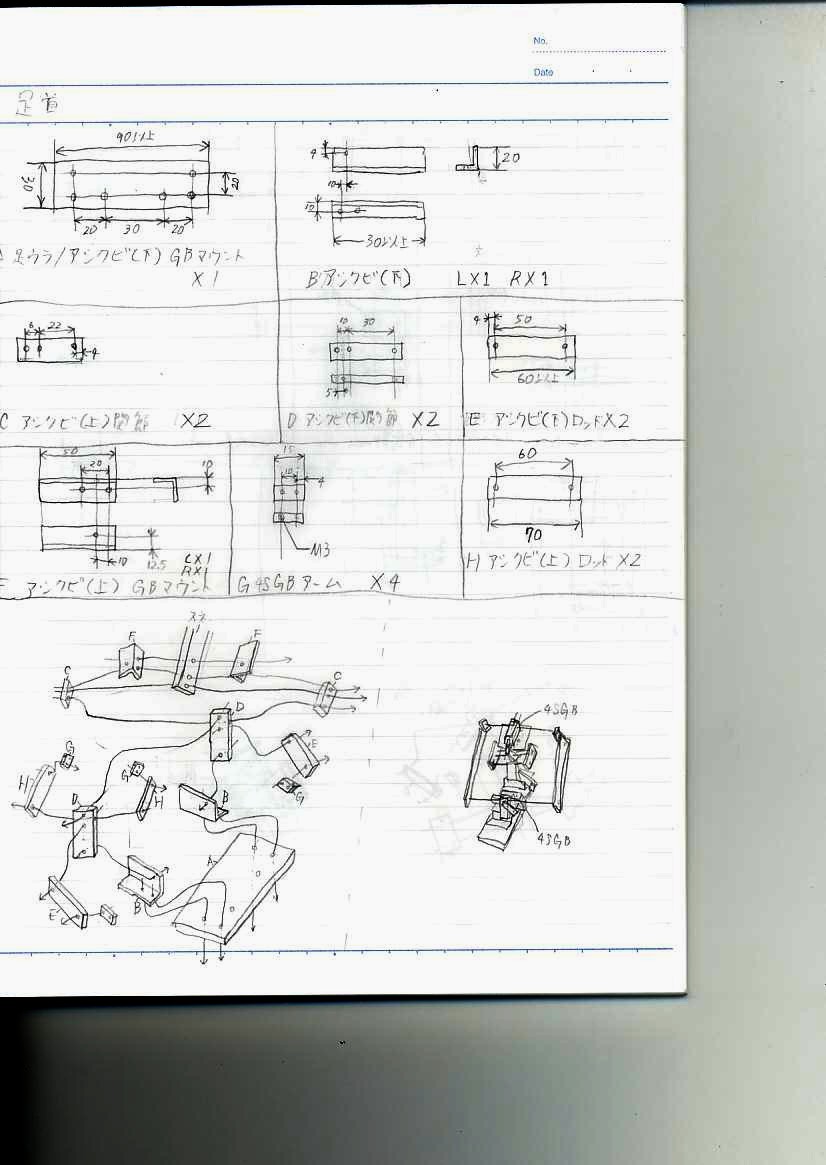 No.
Date
足首
90以上
30
20
20 30 20
足ウラ/アシクビ(下) GBマウント
X1
4
20
10
10
30以上
B アシクビ(下) LX1 RX1
6 22
4
C アシクビ(上)関節 X2
10 30
5
D アシクビ(下)関節 X2
4 50
60以上
E アシクビ(下)ロッドX2
50
20
10
10
12.5
LX1
RX1
F アシクビ(上) GBマウント
15
10
4
M3
G 4SGBアーム X4
60
70
H アシクビ(上) ロッドX2
スネ
F F
C C
D
G E
H G
H G
D B
A
B
E
4SGB
4SGB